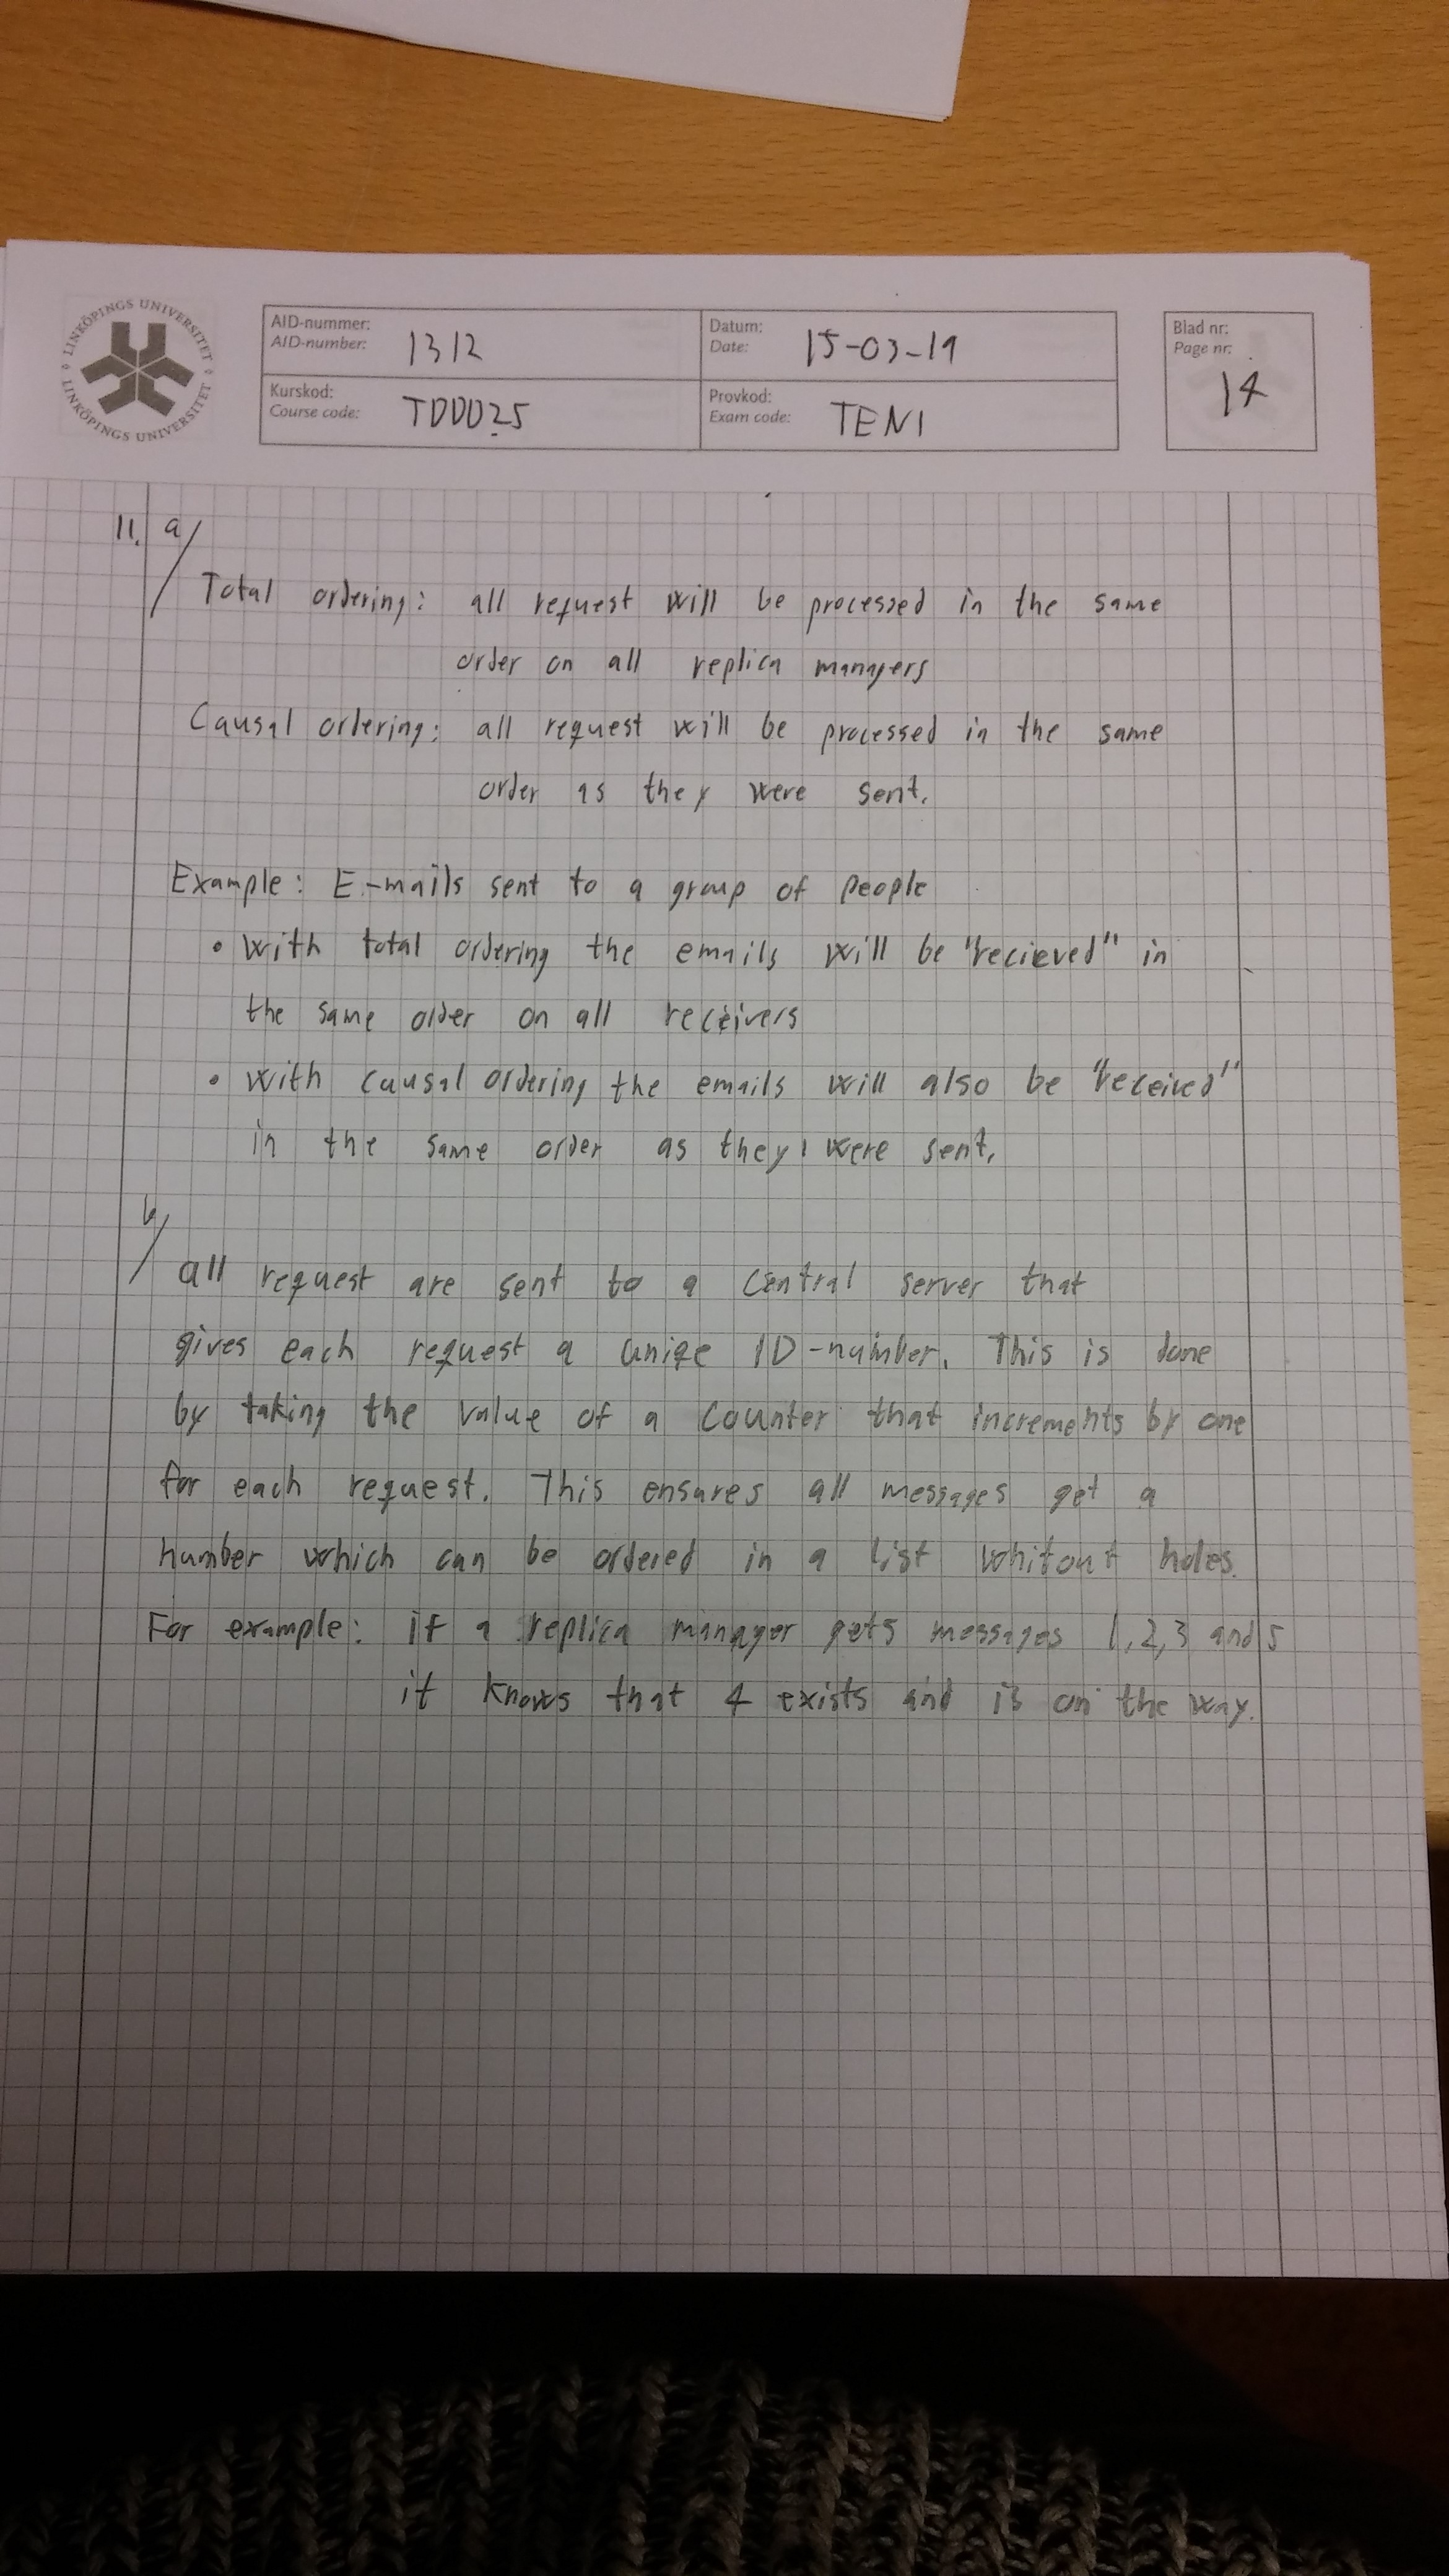 LINKÖPINGS UNIVERSITET
LINKÖPINGS UNIVERSITET
AID-nummer:
AID-number: 1312
Datum:
Date: 15-03-19
Blad nr:
Page nr:
14
Kurskod:
Course code: TDDD25
Provkod:
Exam code: TEN1
11. a/
Total ordering: all request will be processed in the same
order on all replica managers
Causal ordering: all request will be processed in the same
order as they were sent.
Example: E-mails sent to a group of people
• with total ordering the emails will be "recieved" in
the same order on all receivers
• with causal ordering the emails will also be "received"
in the same order as they were sent.
b/
all request are sent to a central server that
gives each request a uniqe ID-number. This is done
by taking the value of a counter that increments by one
for each request. This ensures all messages get a
number which can be ordered in a list whitout holes.
For example: if a replica manager gets messages 1,2,3 and 5
it knows that 4 exists and is on the way.